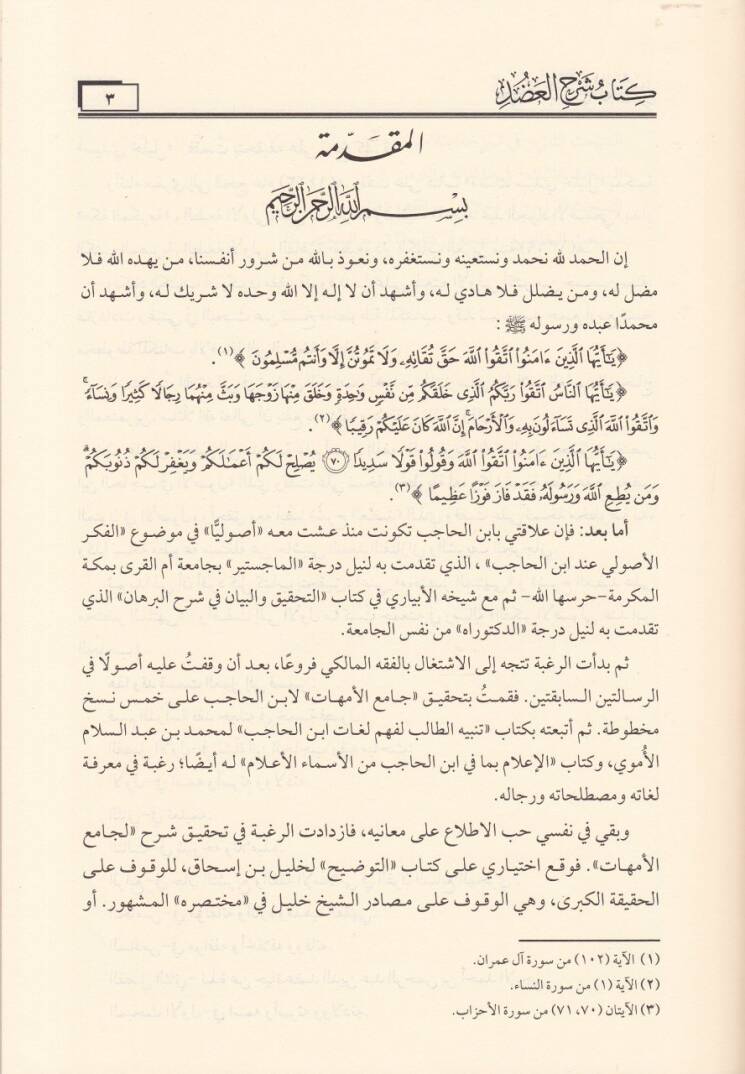 كتاب شرح العضد
٣
المقدمة
بسم الله الرحمن الرحيم
إن الحمد لله نحمد ونستعينه ونستغفره، ونعوذ بالله من شرور أنفسنا، من يهده الله فلا
مضل له، ومن يضلل فلا هادي له، وأشهد أن لا إله إلا الله وحده لا شريك له، وأشهد أن
محمدًا عبده ورسوله ﷺ :
﴿يَٰٓأَيُّهَا ٱلَّذِينَ ءَامَنُوا۟ ٱتَّقُوا۟ ٱللَّهَ حَقَّ تُقَاتِهِۦ وَلَا تَمُوتُنَّ إِلَّا وَأَنتُم مُّسْلِمُونَ﴾(١).
﴿يَٰٓأَيُّهَا ٱلنَّاسُ ٱتَّقُوا۟ رَبَّكُمُ ٱلَّذِى خَلَقَكُم مِّن نَّفْسٍ وَٰحِدَةٍ وَخَلَقَ مِنْهَا زَوْجَهَا وَبَثَّ مِنْهُمَا رِجَالًا كَثِيرًا وَنِسَآءً ۚ
وَٱتَّقُوا۟ ٱللَّهَ ٱلَّذِى تَسَآءَلُونَ بِهِۦ وَٱلْأَرْحَامَ ۚ إِنَّ ٱللَّهَ كَانَ عَلَيْكُمْ رَقِيبًا﴾(٢).
﴿يَٰٓأَيُّهَا ٱلَّذِينَ ءَامَنُوا۟ ٱتَّقُوا۟ ٱللَّهَ وَقُولُوا۟ قَوْلًا سَدِيدًا ٧٠ يُصْلِحْ لَكُمْ أَعْمَٰلَكُمْ وَيَغْفِرْ لَكُمْ ذُنُوبَكُمْ ۗ
وَمَن يُطِعِ ٱللَّهَ وَرَسُولَهُۥ فَقَدْ فَازَ فَوْزًا عَظِيمًا﴾(٣).
أما بعد: فإن علاقتي بابن الحاجب تكونت منذ عشت معه «أصوليًّا» في موضوع «الفكر
الأصولي عند ابن الحاجب» ، الذي تقدمت به لنيل درجة «الماجستير» بجامعة أم القرى بمكة
المكرمة-حرسها الله- ثم مع شيخه الأبياري في كتاب «التحقيق والبيان في شرح البرهان» الذي
تقدمت به لنيل درجة «الدكتوراه» من نفس الجامعة.
ثم بدأت الرغبة تتجه إلى الاشتغال بالفقه المالكي فروعًا، بعد أن وقفتُ عليه أصولًا في
الرسالتين السابقتين. فقمتُ بتحقيق «جامع الأمهات» لابن الحاجب على خمس نسخ
مخطوطة. ثم أتبعته بكتاب «تنبيه الطالب لفهم لغات ابن الحاجب» لمحمد بن عبد السلام
الأُموي، وكتاب «الإعلام بما في ابن الحاجب من الأسماء الأعلام» له أيضًا؛ رغبة في معرفة
لغاته ومصطلحاته ورجاله.
وبقي في نفسي حب الاطلاع على معانيه، فازدادت الرغبة في تحقيق شرح «لجامع
الأمهات». فوقع اختياري على كتاب «التوضيح» لخليل بن إسحاق، للوقوف على
الحقيقة الكبرى، وهي الوقوف على مصادر الشيخ خليل في «مختصره» المشهور. أو
(١) الآية (١٠٢) من سورة آل عمران.
(٢) الآية (١) من سورة النساء.
(٣) الآيتان (٧٠، ٧١) من سورة الأحزاب.